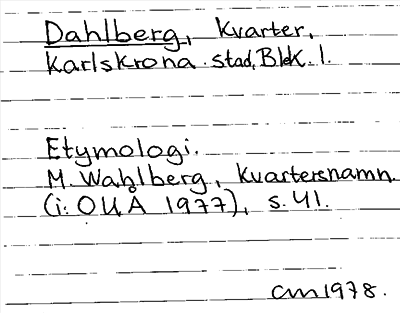 Dahlberg, Kvarter,
Karlskrona stad, Blek. l.
Etymologi.
M. Wahlberg, Kvartersnamn.
(i: OUÅ 1977), s. 41.
cm 1978.